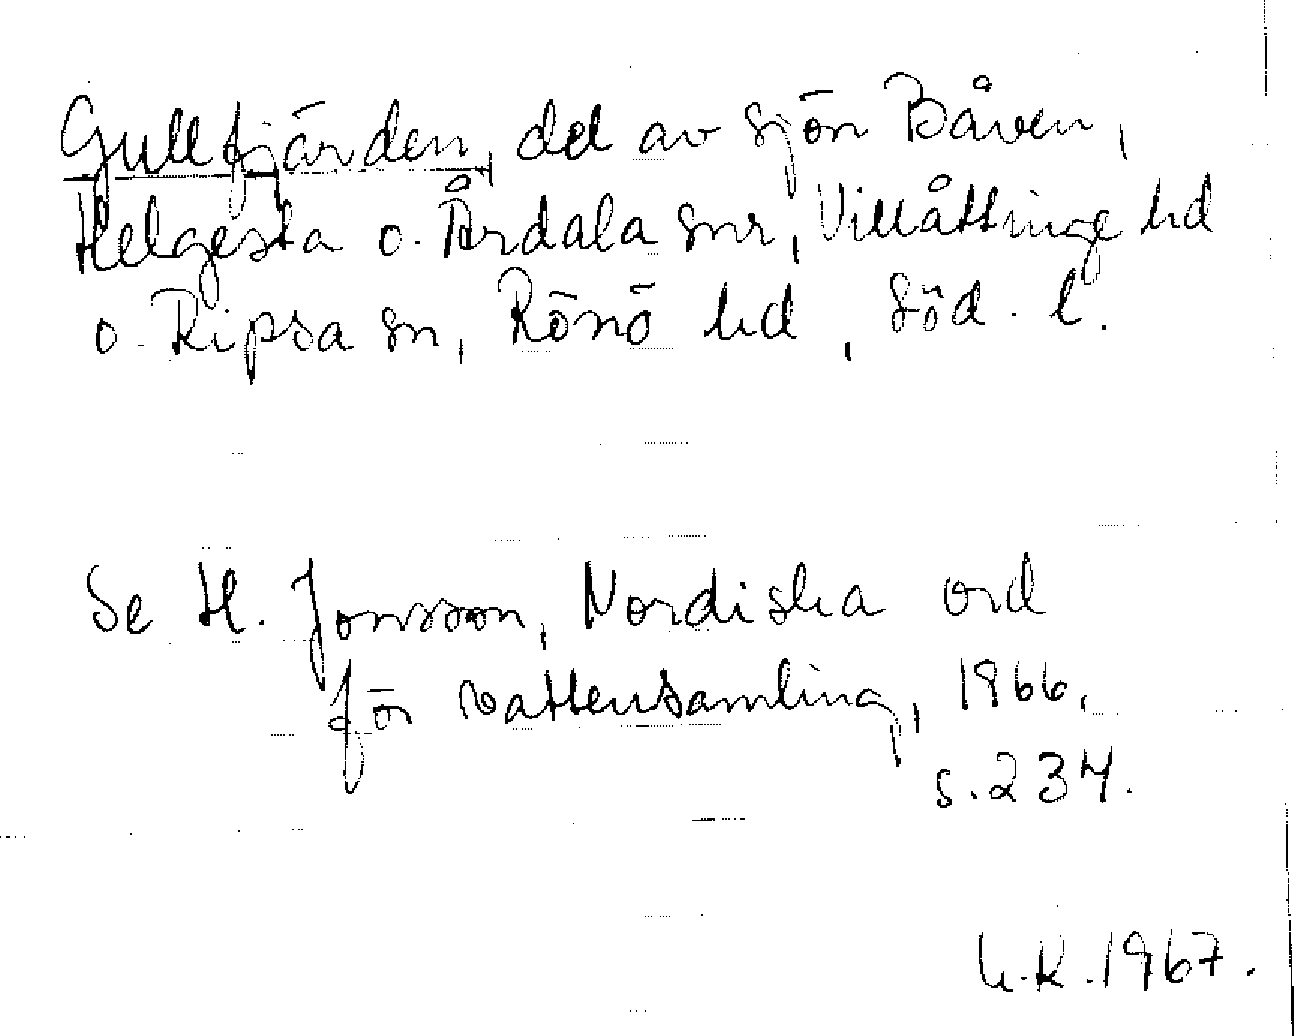 Gullfjärden, del av sjön Båven,
Helgesta o. Årdala snr, Villåttinge hd
o. Ripsa sn, Rönö hd, Söd. l.
Se H. Jonsson, Nordiska ord
för vattensamling, 1966,
s. 234.
h.K. 1967.